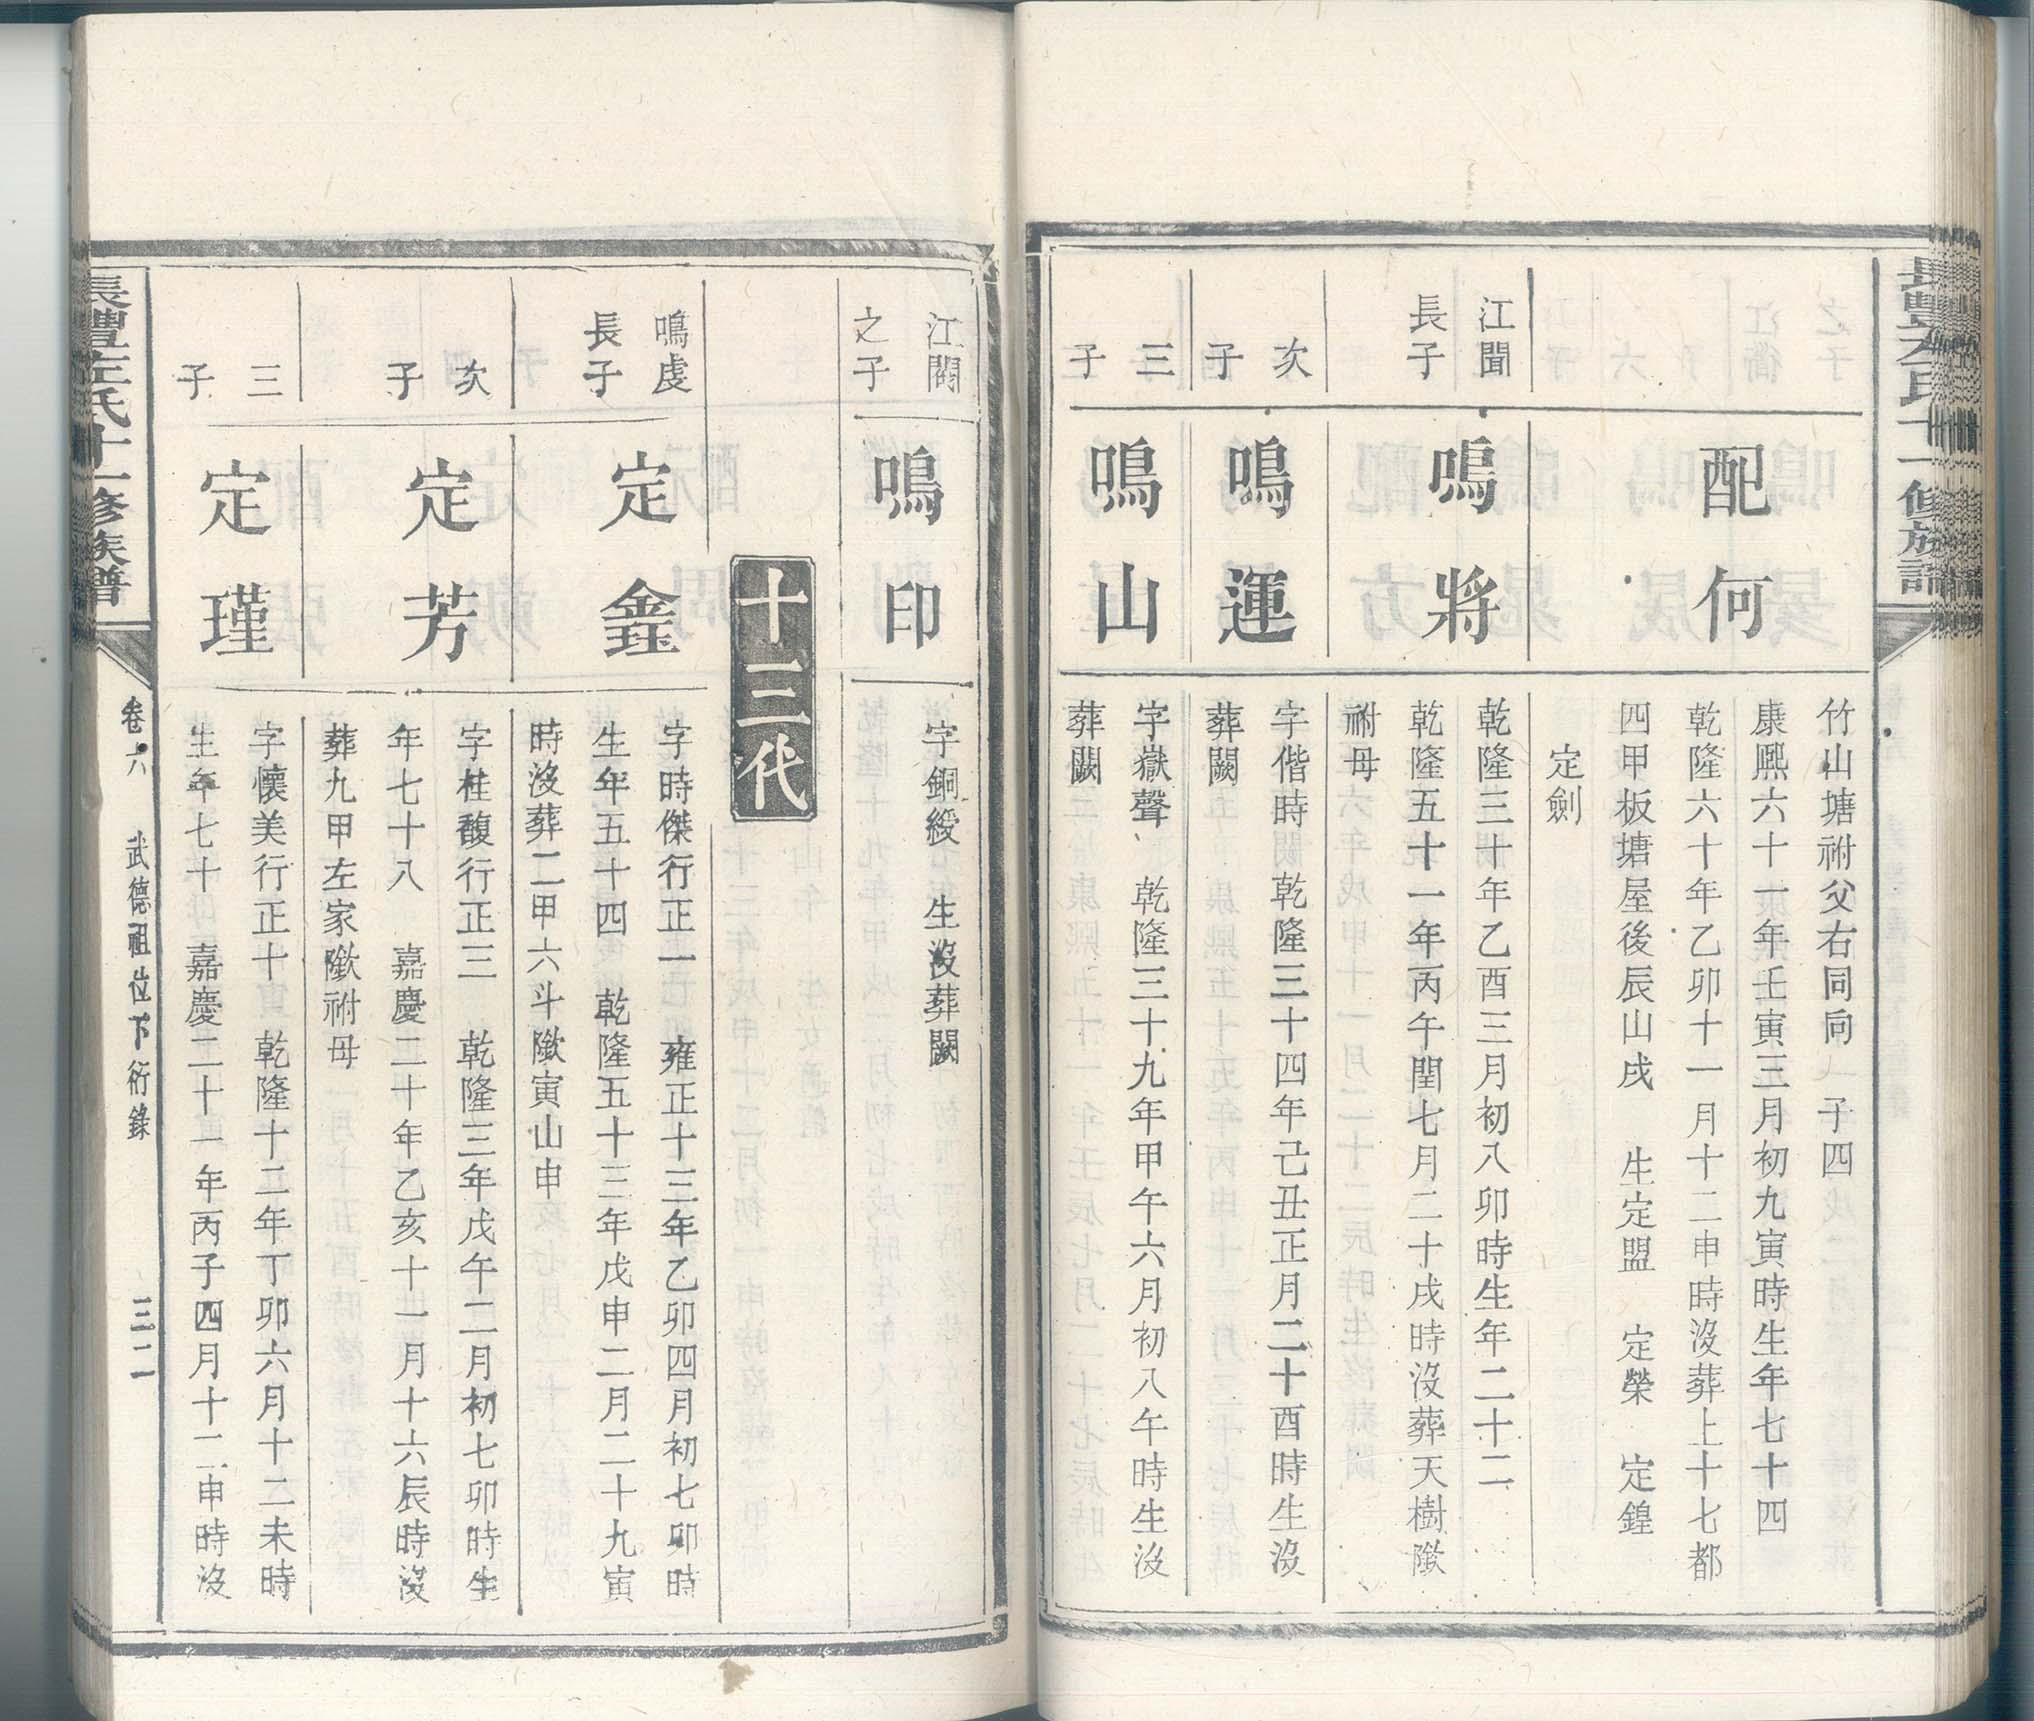 長豐左氏十一修族譜
竹山塘祔父右同向 子四
配何
康熙六十一年壬寅三月初九寅時生年七十四
乾隆六十年乙卯十一月十二申時沒葬上十七都
四甲板塘屋後辰山戌 生定盟 定榮 定鍠
定劍
江聞長子
鳴將
乾隆三十年乙酉三月初八卯時生年二十二
乾隆五十一年丙午閏七月二十戌時沒葬天樹㘭
祔母
次子
鳴運
字偕時 乾隆三十四年己丑正月二十酉時生沒
葬闕
三子
鳴山
字嶽聲 乾隆三十九年甲午六月初八午時生沒
葬闕
江閣之子
鳴印
字銅綬 生沒葬闕
十三代
鳴虔長子
定鑫
字時傑行正一 雍正十三年乙卯四月初七卯時
生年五十四 乾隆五十三年戊申二月二十九寅
時沒葬二甲六斗㘭寅山申
次子
定芳
字桂馥行正三 乾隆三年戊午二月初七卯時生
年七十八 嘉慶二十年乙亥十一月十六辰時沒
葬九甲左家㘭祔母
三子
定瑾
字懷美行正十 乾隆十二年丁卯六月十二未時
生年七十 嘉慶二十一年丙子四月十二申時沒
長豐左氏十一修族譜
卷六 武德祖位下衍錄 三二